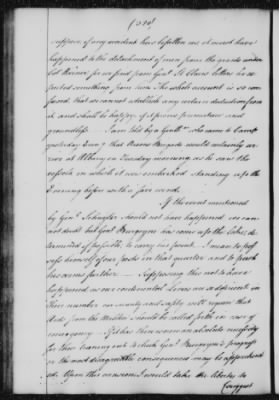 (310)
suppose, if any accident has befallen us, it must have
happened to the detachment of men from the grants under
Col Warner, for we find from Genl St Clairs letters he ex-
pected something from him. The whole account is so con-
fused, that we cannot establish any certain deduction from
it, and shall be happy, if it proves premature and
groundless. I am told by a Gentn who came to Camp
yesterday Even'g that Nixons Brigade would certainly ar-
rive at Albany on Tuesday morning, as he saw the
vessels in which it was embarked standing up the
Evening before with a fair wind.
If the event mentioned
by Genl Schuyler should not have happened we can-
not doubt but Genl Burgoyne has come up the Lakes de-
termined, if possible, to carry his point. I mean to pos-
sess himself of our posts in that quarter and to push
his arms further — Supposing this not to have
happened, as our continental Levies are so deficient in
their number, our security and safety will require that
Aids from the Militia should be called forth in case of
emergency — If it has there is now an absolute necessity
for their turning out to check Genl Burgoyne's progress
or the most disagreeable consequences may be apprehend-
ed. Upon this occasion I would take the liberty to
suggest